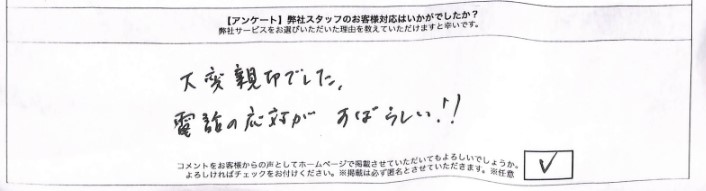 【アンケート】弊社スタッフのお客様対応はいかがでしたか？
弊社サービスをお選びいただいた理由を教えていただけますと幸いです。
大変親切でした。
電話の応対がすばらしい!!
コメントをお客様からの声としてホームページで掲載させていただいてもよろしいでしょうか。
よろしければチェックをお付けください。※掲載は必ず匿名とさせていただきます。※任意